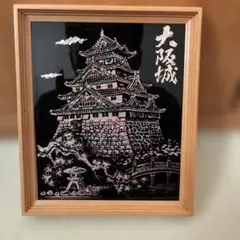 大阪城